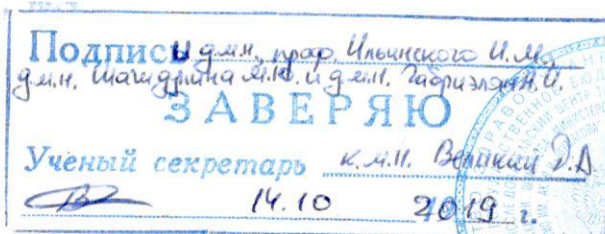 Подписи д.м.н., проф. Ильинского И.М.,
д.м.н. Шагидулина М.Ю. и д.м.н. Габриэлян Н.И.
ЗАВЕРЯЮ
Ученый секретарь к.м.н. Великий Д.А.
14.10 2019 г.